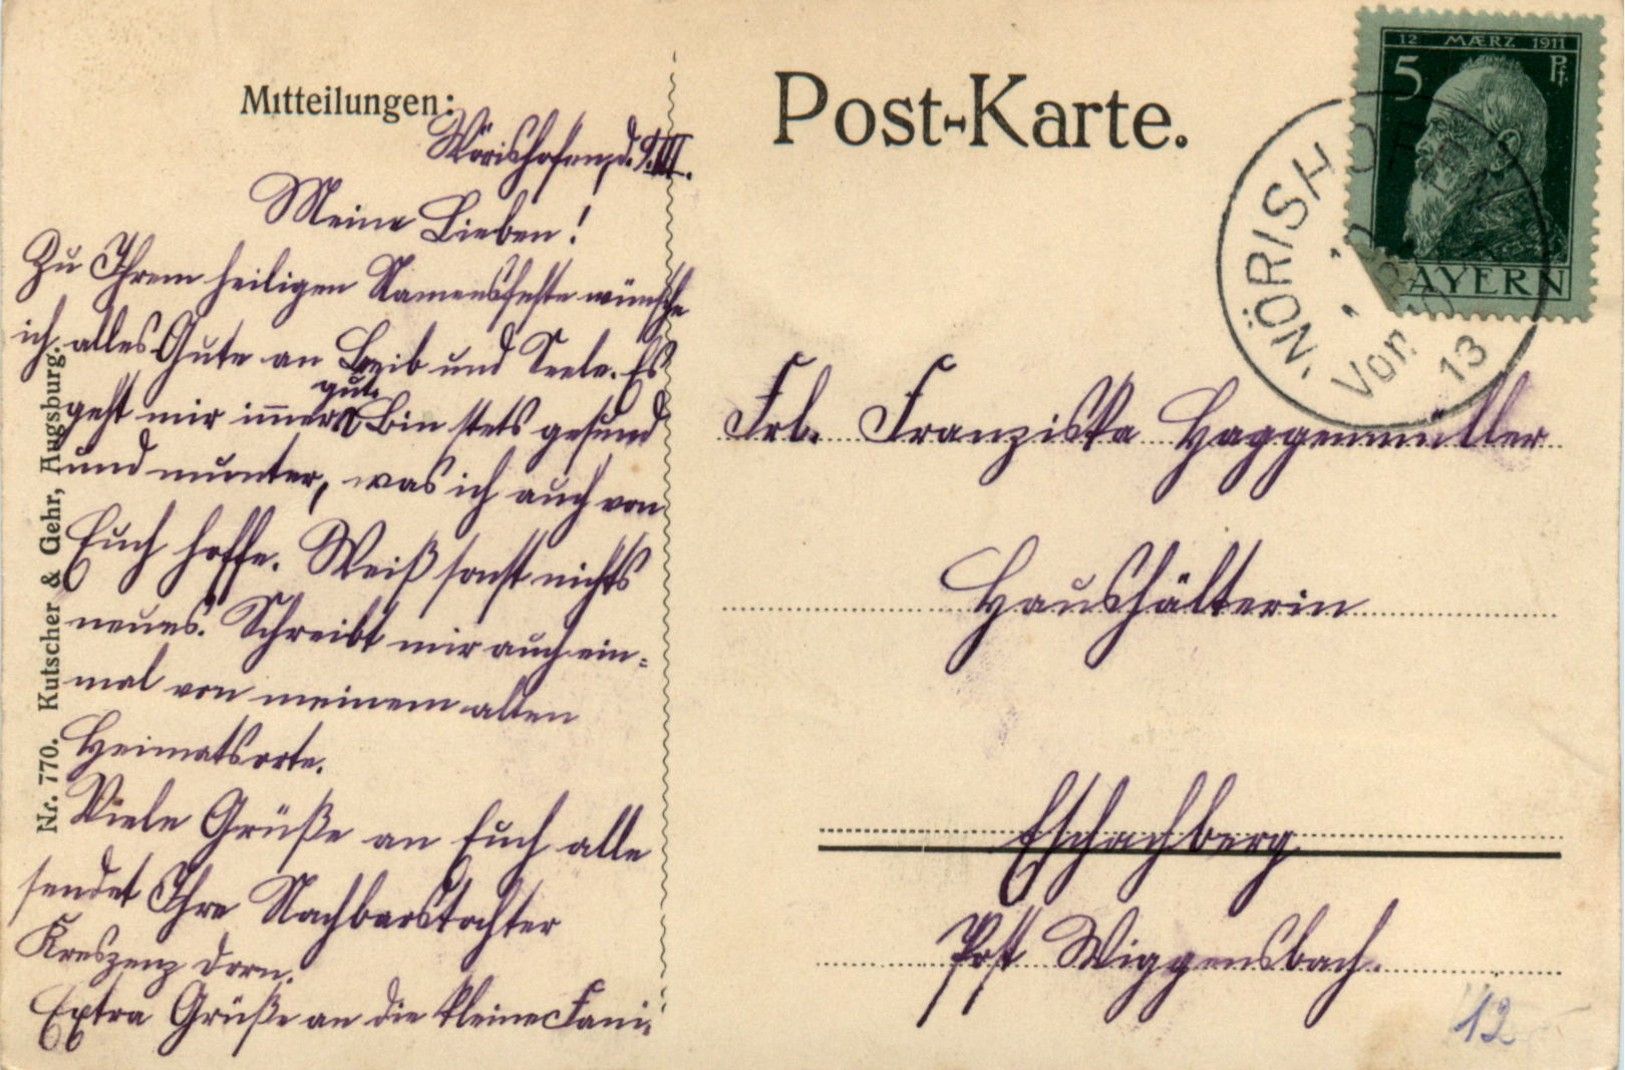 Mitteilungen:
Wörishofen, d. 9. III.
Meine Lieben!
Zu Ihrem heiligen Namensfeste wünsche
ich alles Gute an Leib und Seele. Es
geht mir immer gut. Bin stets gesund
und munter, was ich auch von
Euch hoffe. Weiß sonst nichts
neues. Schreibt mir auch ein-
mal von meinem alten
Heimatsorte.
Viele Grüße an Euch alle
sendet Ihre Nachbarstochter
Kreszenz Dorn.
Extra Grüße an die kleine Fani.
Nr. 770. Kutscher & Gehr, Augsburg.
Post-Karte.
12 MÆRZ 1911
5 Pf.
BAYERN
WÖRISHOFEN
Vor.
13
Frl. Franziska Haggenmüller
Haushälterin
Eschachberg
Post Wiggensbach.
12